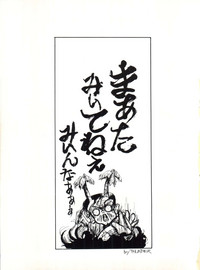 まあた
みいてねぇ
みいんなぁぁぁ
by